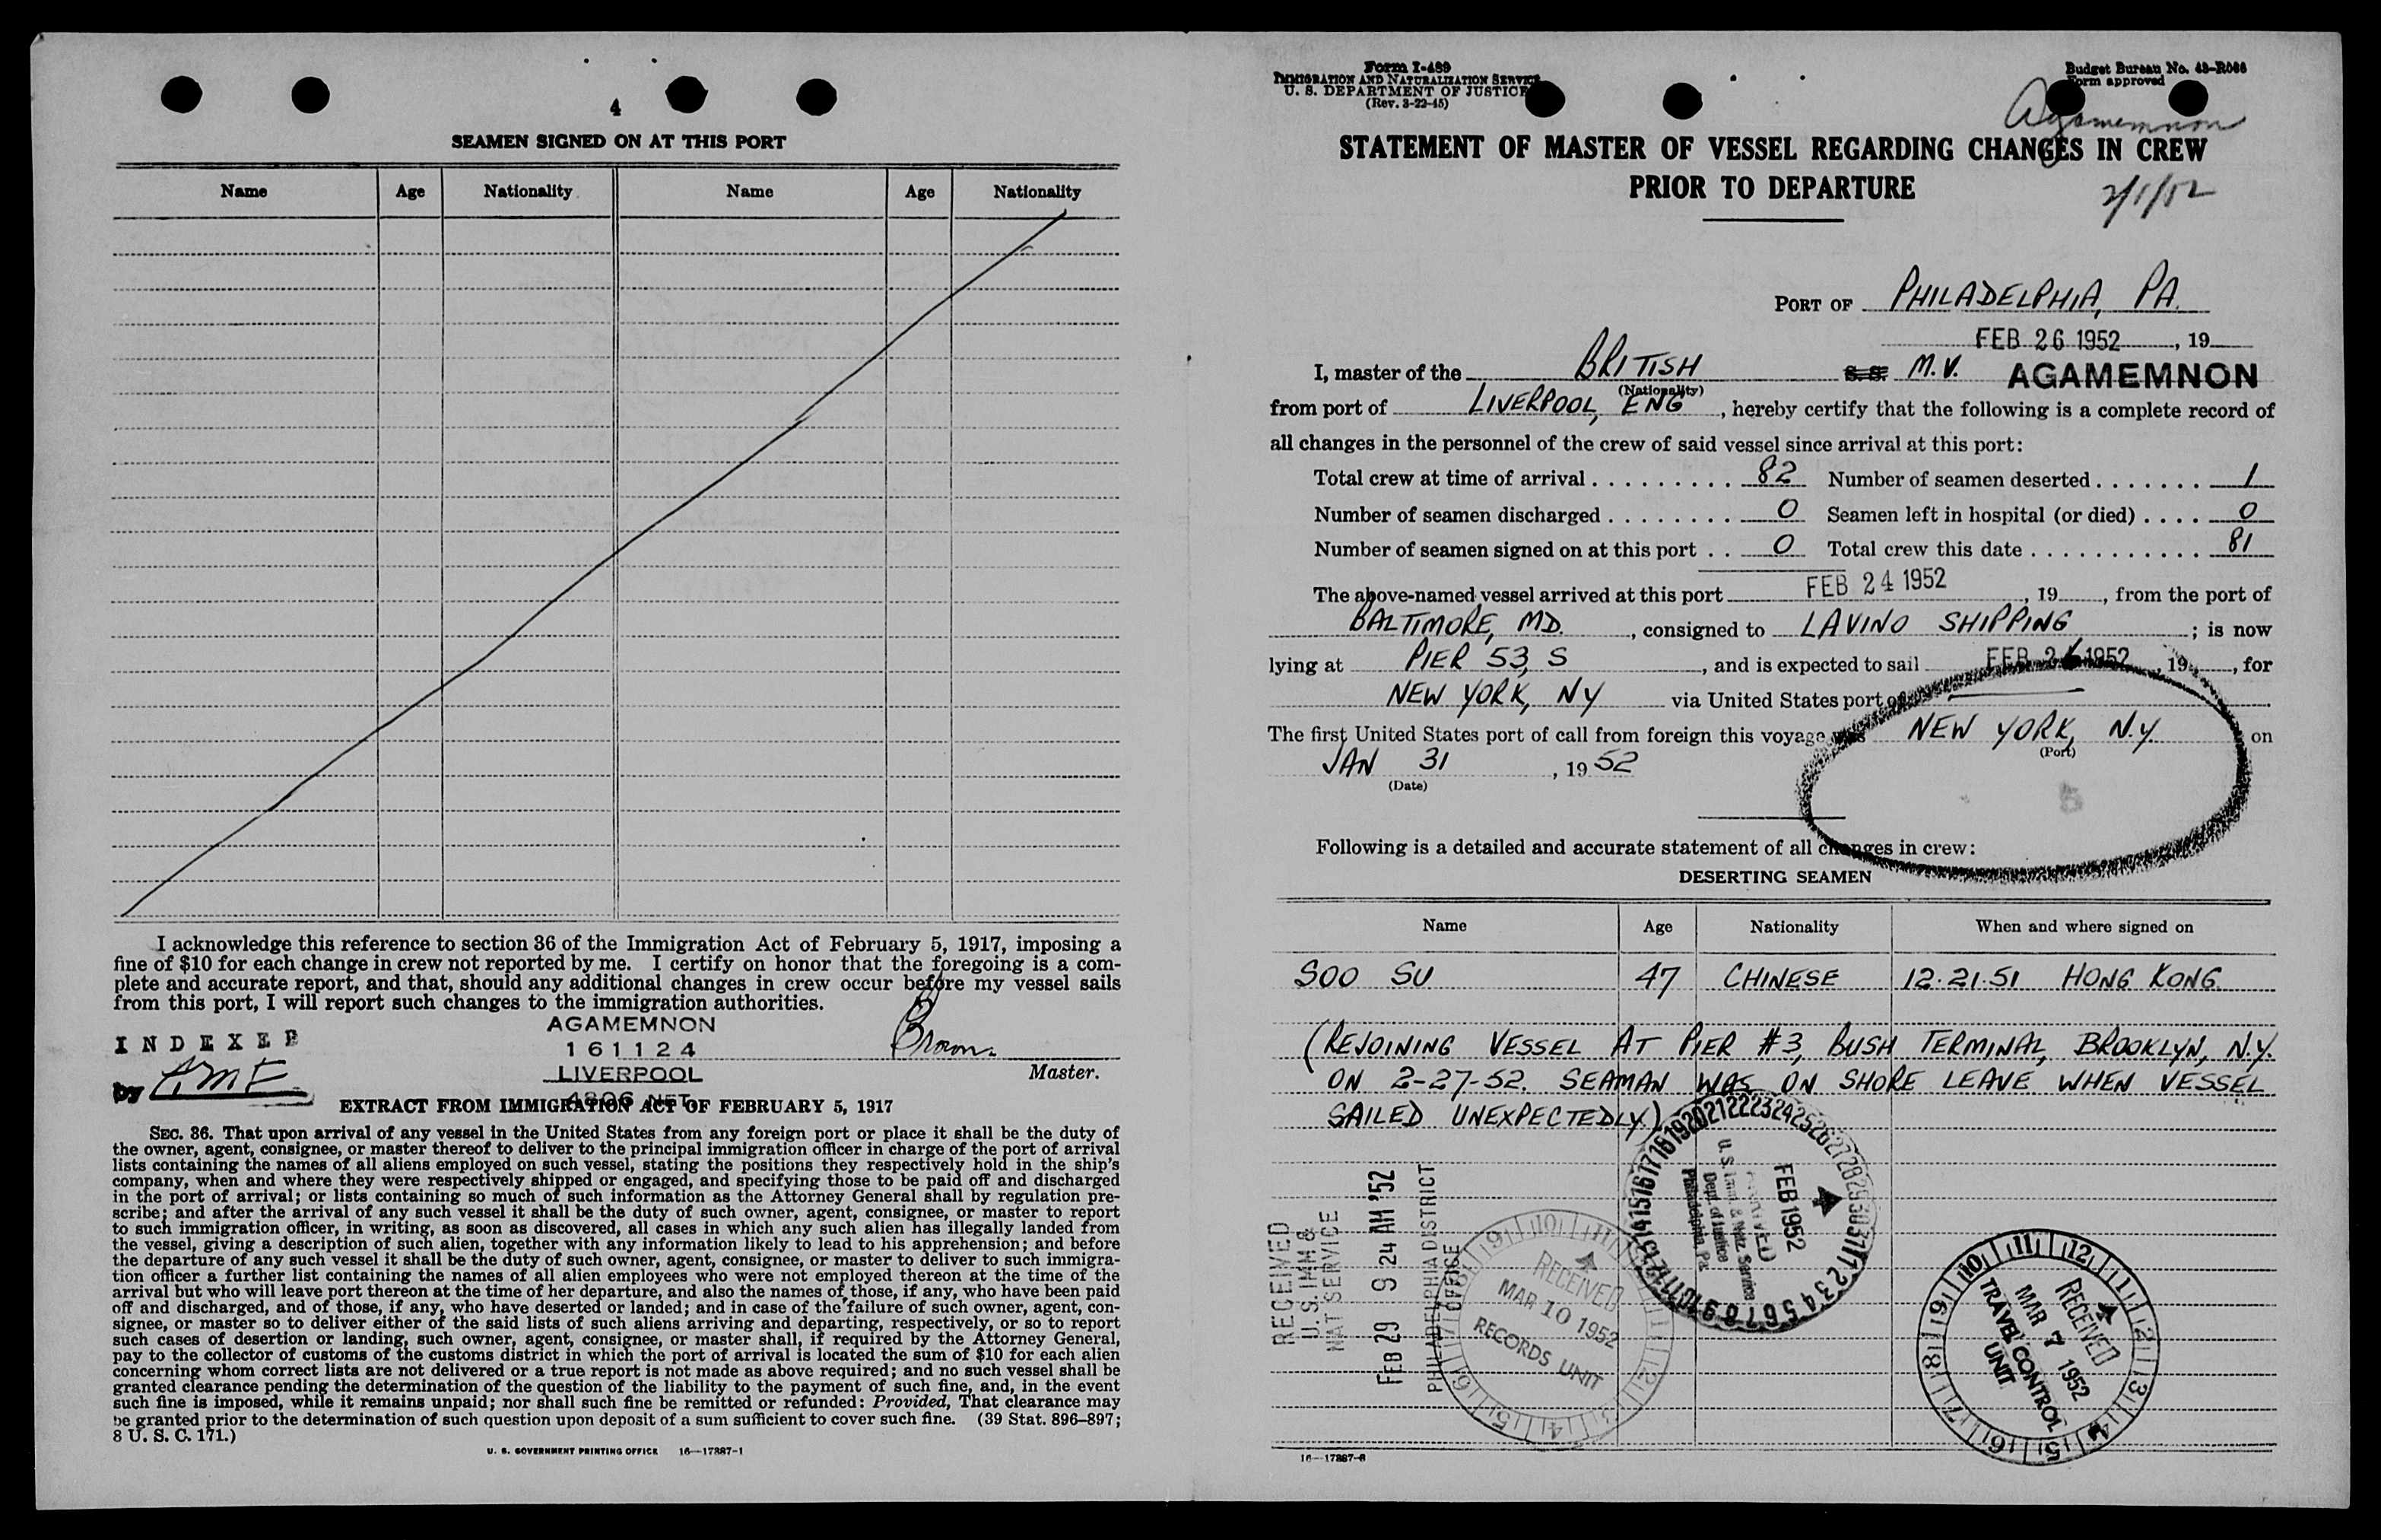 4
SEAMEN SIGNED ON AT THIS PORT
Name Age Nationality Name Age Nationality
I acknowledge this reference to section 36 of the Immigration Act of February 5, 1917, imposing a
fine of $10 for each change in crew not reported by me. I certify on honor that the foregoing is a com-
plete and accurate report, and that, should any additional changes in crew occur before my vessel sails
from this port, I will report such changes to the immigration authorities.
INDEXED
by
AGAMEMNON
161124
LIVERPOOL
4806 NET
Brown
Master.
EXTRACT FROM IMMIGRATION ACT OF FEBRUARY 5, 1917
SEC. 36. That upon arrival of any vessel in the United States from any foreign port or place it shall be the duty of
the owner, agent, consignee, or master thereof to deliver to the principal immigration officer in charge of the port of arrival
lists containing the names of all aliens employed on such vessel, stating the positions they respectively hold in the ship's
company, when and where they were respectively shipped or engaged, and specifying those to be paid off and discharged
in the port of arrival; or lists containing so much of such information as the Attorney General shall by regulation pre-
scribe; and after the arrival of any such vessel it shall be the duty of such owner, agent, consignee, or master to report
to such immigration officer, in writing, as soon as discovered, all cases in which any such alien has illegally landed from
the vessel, giving a description of such alien, together with any information likely to lead to his apprehension; and before
the departure of any such vessel it shall be the duty of such owner, agent, consignee, or master to deliver to such immigra-
tion officer a further list containing the names of all alien employees who were not employed thereon at the time of the
arrival but who will leave port thereon at the time of her departure, and also the names of those, if any, who have been paid
off and discharged, and of those, if any, who have deserted or landed; and in case of the failure of such owner, agent, con-
signee, or master so to deliver either of the said lists of such aliens arriving and departing, respectively, or so to report
such cases of desertion or landing, such owner, agent, consignee, or master shall, if required by the Attorney General,
pay to the collector of customs of the customs district in which the port of arrival is located the sum of $10 for each alien
concerning whom correct lists are not delivered or a true report is not made as above required; and no such vessel shall be
granted clearance pending the determination of the question of the liability to the payment of such fine, and, in the event
such fine is imposed, while it remains unpaid; nor shall such fine be remitted or refunded: Provided, That clearance may
be granted prior to the determination of such question upon deposit of a sum sufficient to cover such fine. (39 Stat. 896–897;
8 U. S. C. 171.)
U. S. GOVERNMENT PRINTING OFFICE 16—17887-1
Form I-489
IMMIGRATION AND NATURALIZATION SERVICE
U. S. DEPARTMENT OF JUSTICE
(Rev. 3-22-45)
Budget Bureau No. 43-R086
Form approved
Agamemnon
STATEMENT OF MASTER OF VESSEL REGARDING CHANGES IN CREW
PRIOR TO DEPARTURE
2/1/52
PORT OF PHILADELPHIA, PA.
FEB 26 1952, 19
I, master of the BRITISH S.S. M.V. AGAMEMNON
(Nationality)
from port of LIVERPOOL, ENG, hereby certify that the following is a complete record of
all changes in the personnel of the crew of said vessel since arrival at this port:
Total crew at time of arrival . . . . . . . . . . 82 Number of seamen deserted . . . . . . . 1
Number of seamen discharged . . . . . . . . 0 Seamen left in hospital (or died) . . . . 0
Number of seamen signed on at this port . . 0 Total crew this date . . . . . . . . . . . 81
The above-named vessel arrived at this port FEB 24 1952, 19, from the port of
BALTIMORE, MD., consigned to LAVINO SHIPPING; is now
lying at PIER 53, S, and is expected to sail FEB 26 1952, 19, for
NEW YORK, NY via United States port of
The first United States port of call from foreign this voyage was NEW YORK, N.Y. on
(Port)
JAN 31, 19 52
(Date)
5
Following is a detailed and accurate statement of all changes in crew:
DESERTING SEAMEN
Name Age Nationality When and where signed on
SOO SU 47 CHINESE 12.21.51 HONG KONG
(REJOINING VESSEL AT PIER #3, BUSH TERMINAL, BROOKLYN, N.Y.
ON 2-27-52. SEAMAN WAS ON SHORE LEAVE WHEN VESSEL
SAILED UNEXPECTEDLY)
RECEIVED
U.S. IMM &
NAT SERVICE
FEB 29 9 24 AM '52
PHILADELPHIA DISTRICT
OFFICE
RECEIVED
MAR 10 1952
RECORDS UNIT
FEB 1952
RECEIVED
U. S. Imm. & Natz. Service
Dept. of Justice
Philadelphia, Pa.
RECEIVED
MAR 7 1952
TRAVEL CONTROL
UNIT
16—17887-8